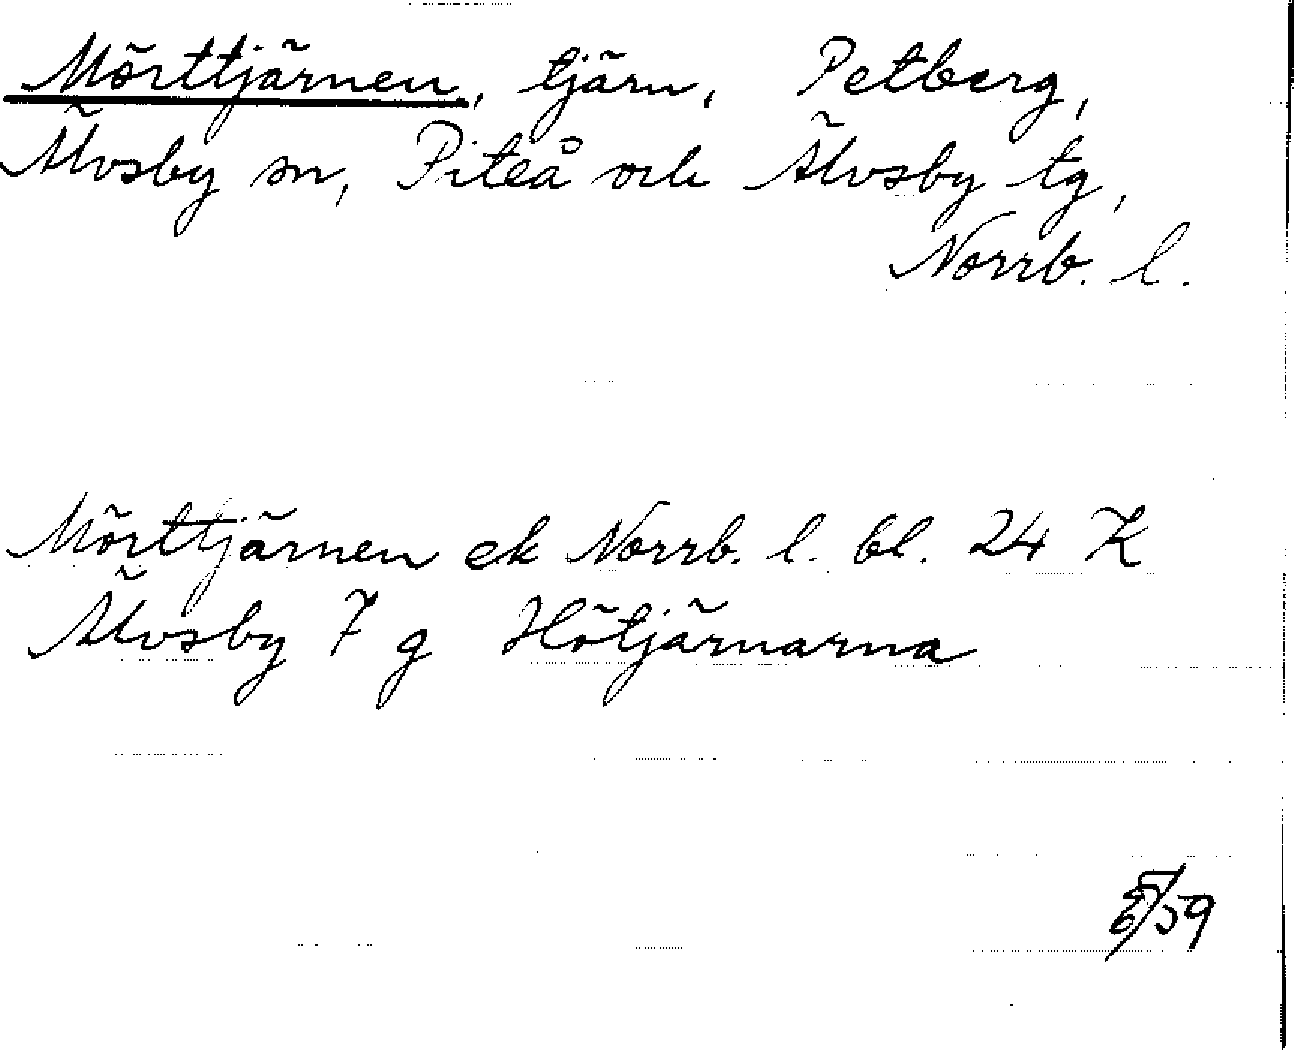 Mörttjärnen, tjärn, Petberg,
Älvsby sn, Piteå och Älvsby tg,
Norrb. l.
Mörttjärnen ek Norrb. l. bl. 24 K
Älvsby 7 g Hötjärnarna